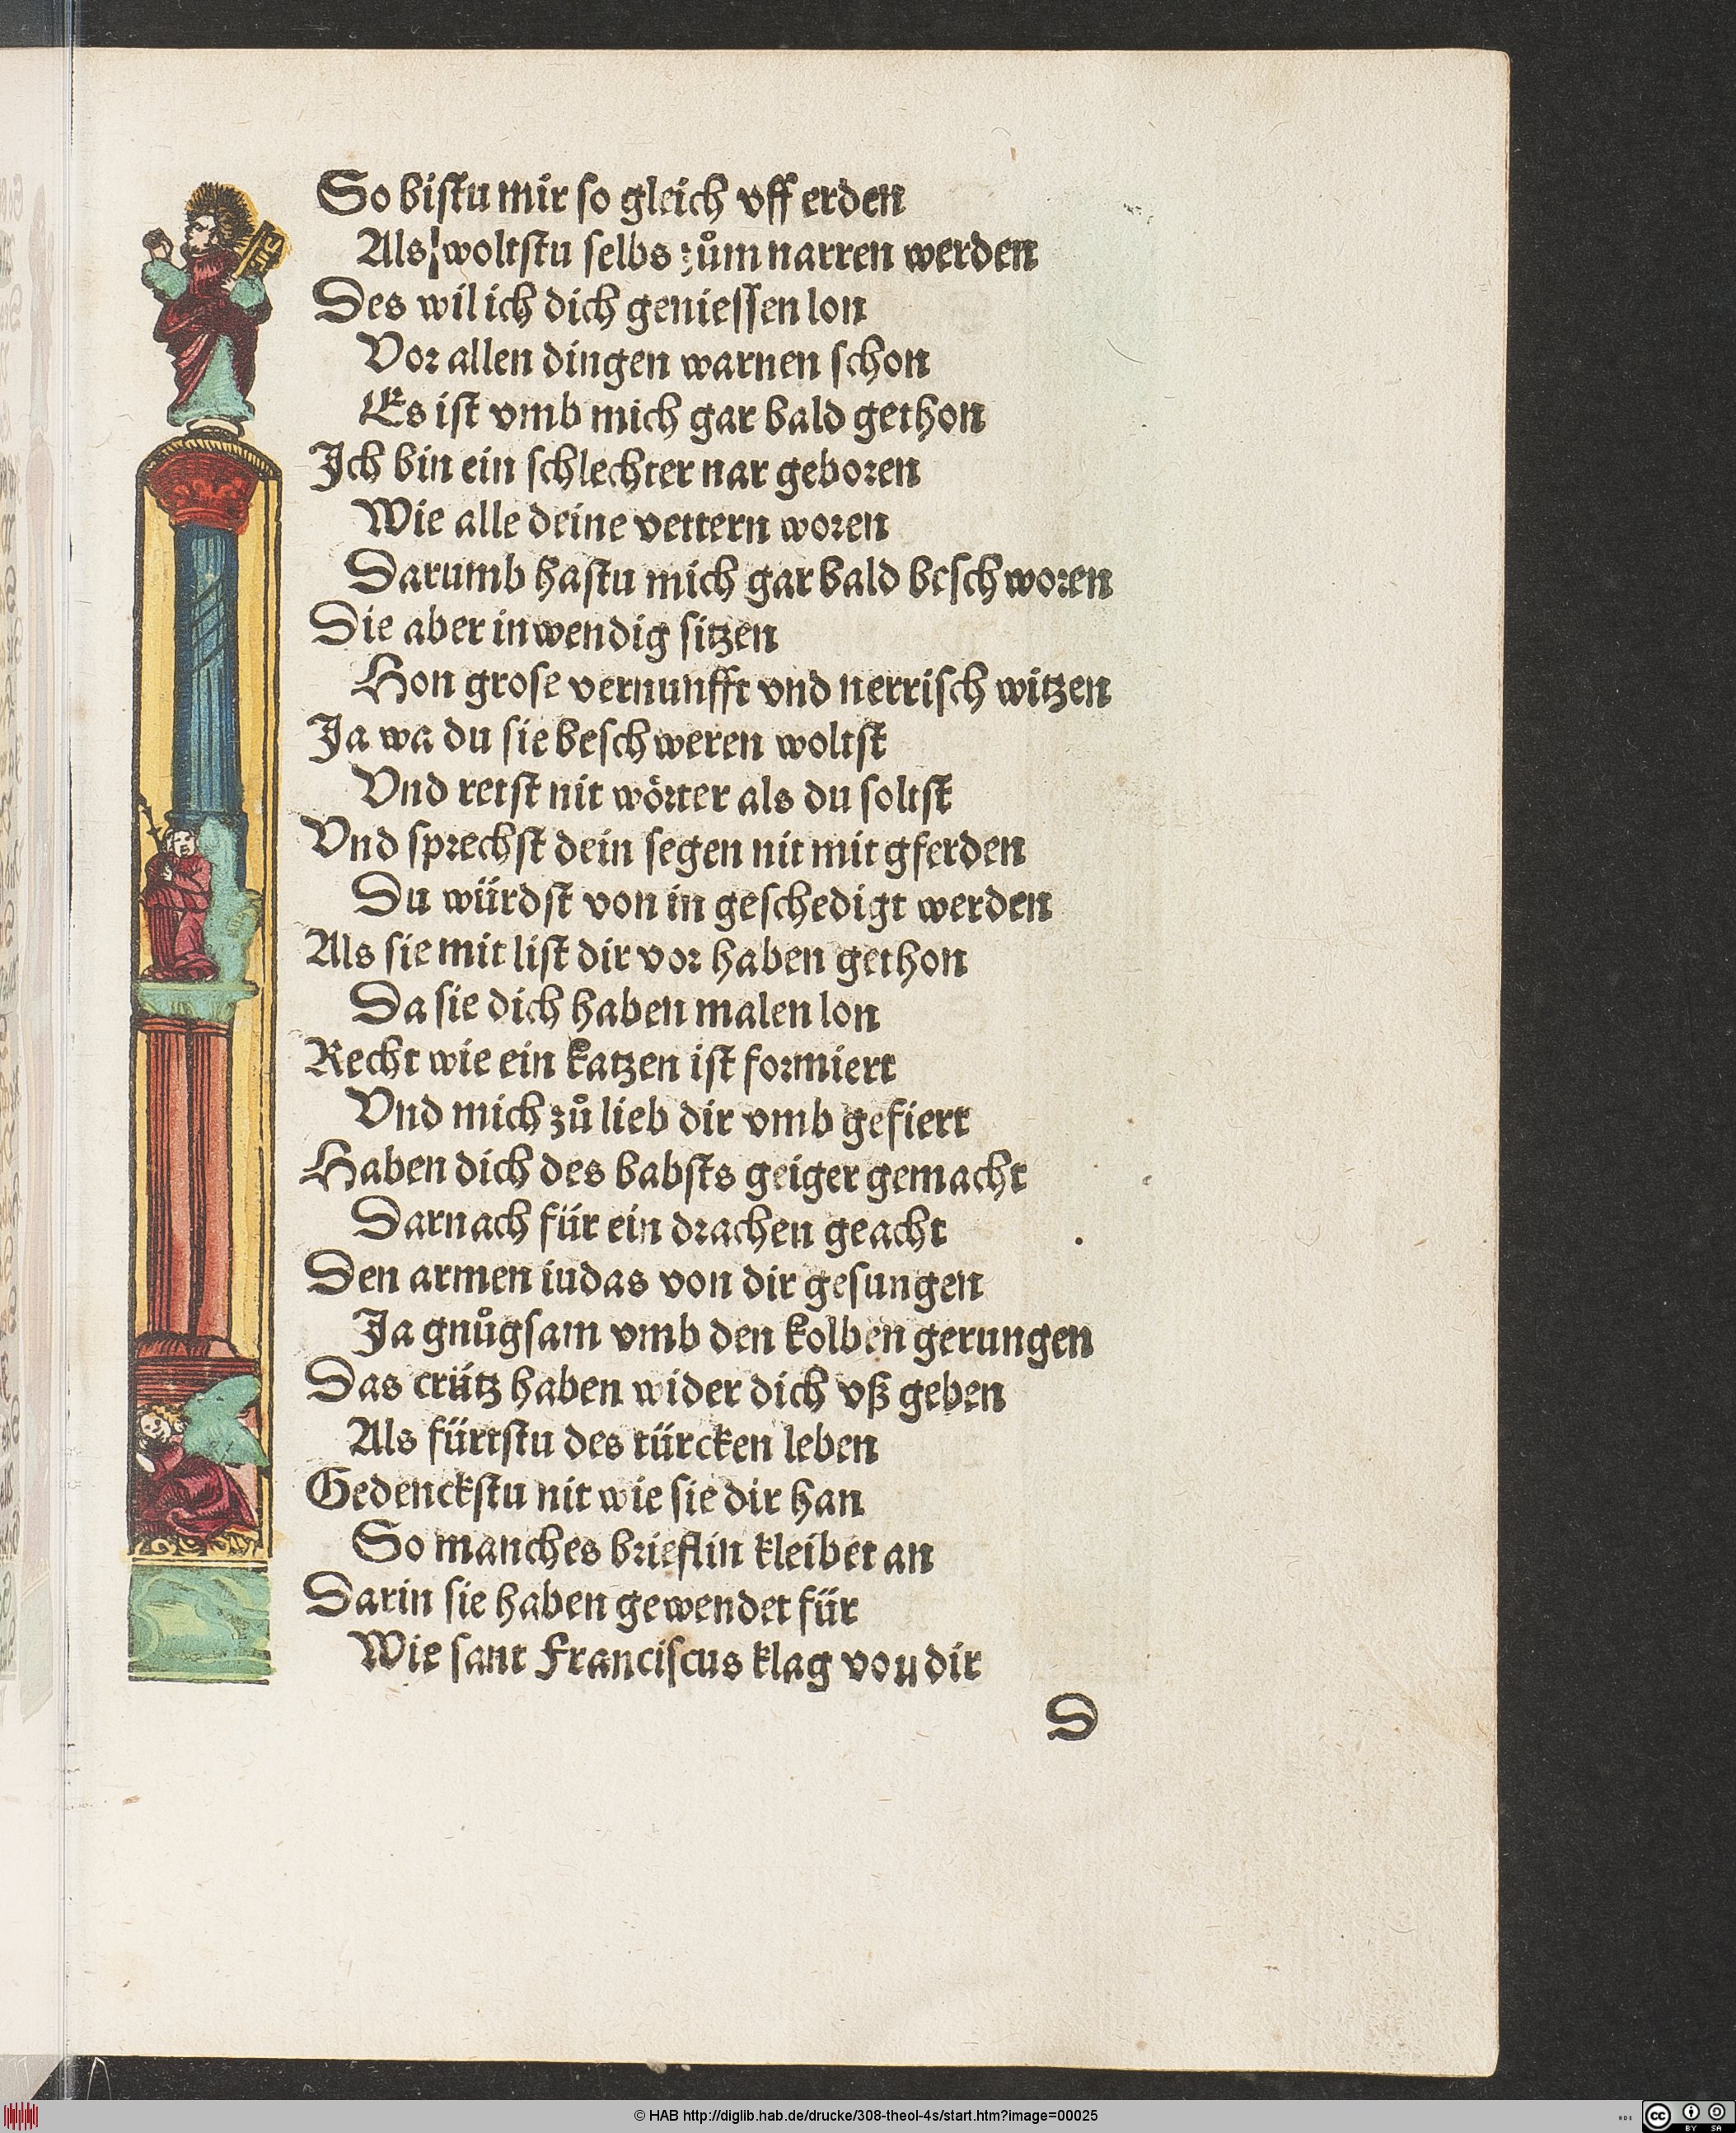 So bistu mir so gleich vff erden
Als woltstu selbs zům narren werden
Des wil ich dich geniessen lon
Vor allen dingen warnen schon
Es ist vmb mich gar bald gethon
Ich bin ein schlechter nar geboren
Wie alle deine vettern woren
Darumb hastu mich gar bald beschworen
Die aber inwendig sitzen
Hon grose vernunfft vnd nerrisch witzen
Ja wa du sie beschweren woltst
Vnd retst nit wörter als du soltst
Vnd sprechst dein segen nit mit gferden
Du würdst von in geschedigt werden
Als sie mit list dir vor haben gethon
Da sie dich haben malen lon
Recht wie ein katzen ist formiert
Vnd mich zů lieb dir vmb gefiert
Haben dich des babsts geiger gemacht
Darnach für ein drachen geacht
Den armen iudas von dir gesungen
Ja gnůgsam vmb den kolben gerungen
Das crütz haben wider dich vß geben
Als fürtstu des türcken leben
Gedenckstu nit wie sie dir han
So manches brieflin kleibet an
Darin sie haben gewendet für
Wie sant Franciscus klag vou dir
D
© HAB http://diglib.hab.de/drucke/308-theol-4s/start.htm?image=00025
cc BY SA